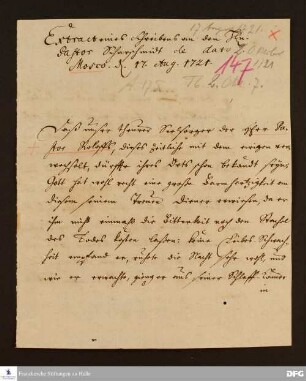 Extract eines Schreibens an den Hn.
Pastor Scharschmidt de dato
Mosco. d. 17. Aug. 1721.
147
Daß unser theurer Seelsorger der Herr Pa-
stor Roloff, dieses Zeitliche mit dem ewigen ver-
wechselt, dürffte ihnen dorthen bekandt seyn.
Gott hat wohl recht eine große Barmhertzigkeit an
diesem seinem treuen Diener erwiesen, da er
ihn nicht einmahl die Bitterkeit noch den Stachel
des Todes kosten lassen: keine Leibes Schwach-
heit empfand er, ruhte die Nacht sehr wohl, und
wie er erwachte, gienge er aus seiner Schlaff-Cammer
in
Franckesche Stiftungen zu Halle
DFG